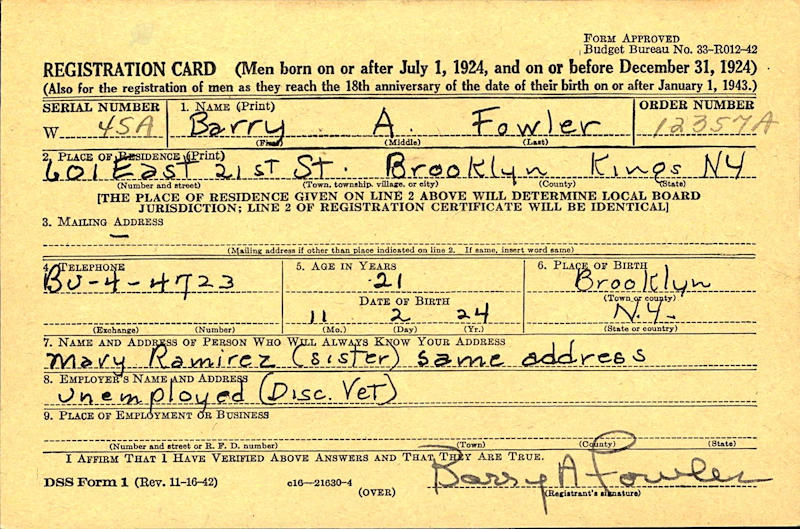 FORM APPROVED
Budget Bureau No. 33-R012-42
REGISTRATION CARD (Men born on or after July 1, 1924, and on or before December 31, 1924)
(Also for the registration of men as they reach the 18th anniversary of the date of their birth on or after January 1, 1943.)
SERIAL NUMBER 1. NAME (Print) ORDER NUMBER
W 45A Barry A. Fowler 12357A
(First) (Middle) (Last)
2. PLACE OF RESIDENCE (Print)
601 East 21st St. Brooklyn Kings NY
(Number and street) (Town, township, village, or city) (County) (State)
[THE PLACE OF RESIDENCE GIVEN ON LINE 2 ABOVE WILL DETERMINE LOCAL BOARD
JURISDICTION; LINE 2 OF REGISTRATION CERTIFICATE WILL BE IDENTICAL]
3. MAILING ADDRESS
—
(Mailing address if other than place indicated on line 2. If same, insert word same)
4. TELEPHONE 5. AGE IN YEARS 6. PLACE OF BIRTH
BU-4-4723 21 Brooklyn
DATE OF BIRTH (Town or county)
11 2 24 N.Y.
(Exchange) (Number) (Mo.) (Day) (Yr.) (State or country)
7. NAME AND ADDRESS OF PERSON WHO WILL ALWAYS KNOW YOUR ADDRESS
Mary Ramirez (sister) same address
8. EMPLOYER'S NAME AND ADDRESS
Unemployed (Disc. Vet)
9. PLACE OF EMPLOYMENT OR BUSINESS
(Number and street or R. F. D. number) (Town) (County) (State)
I AFFIRM THAT I HAVE VERIFIED ABOVE ANSWERS AND THAT THEY ARE TRUE.
Barry A Fowler
DSS Form 1 (Rev. 11-16-42) c16—21630-4 (OVER) (Registrant's signature)